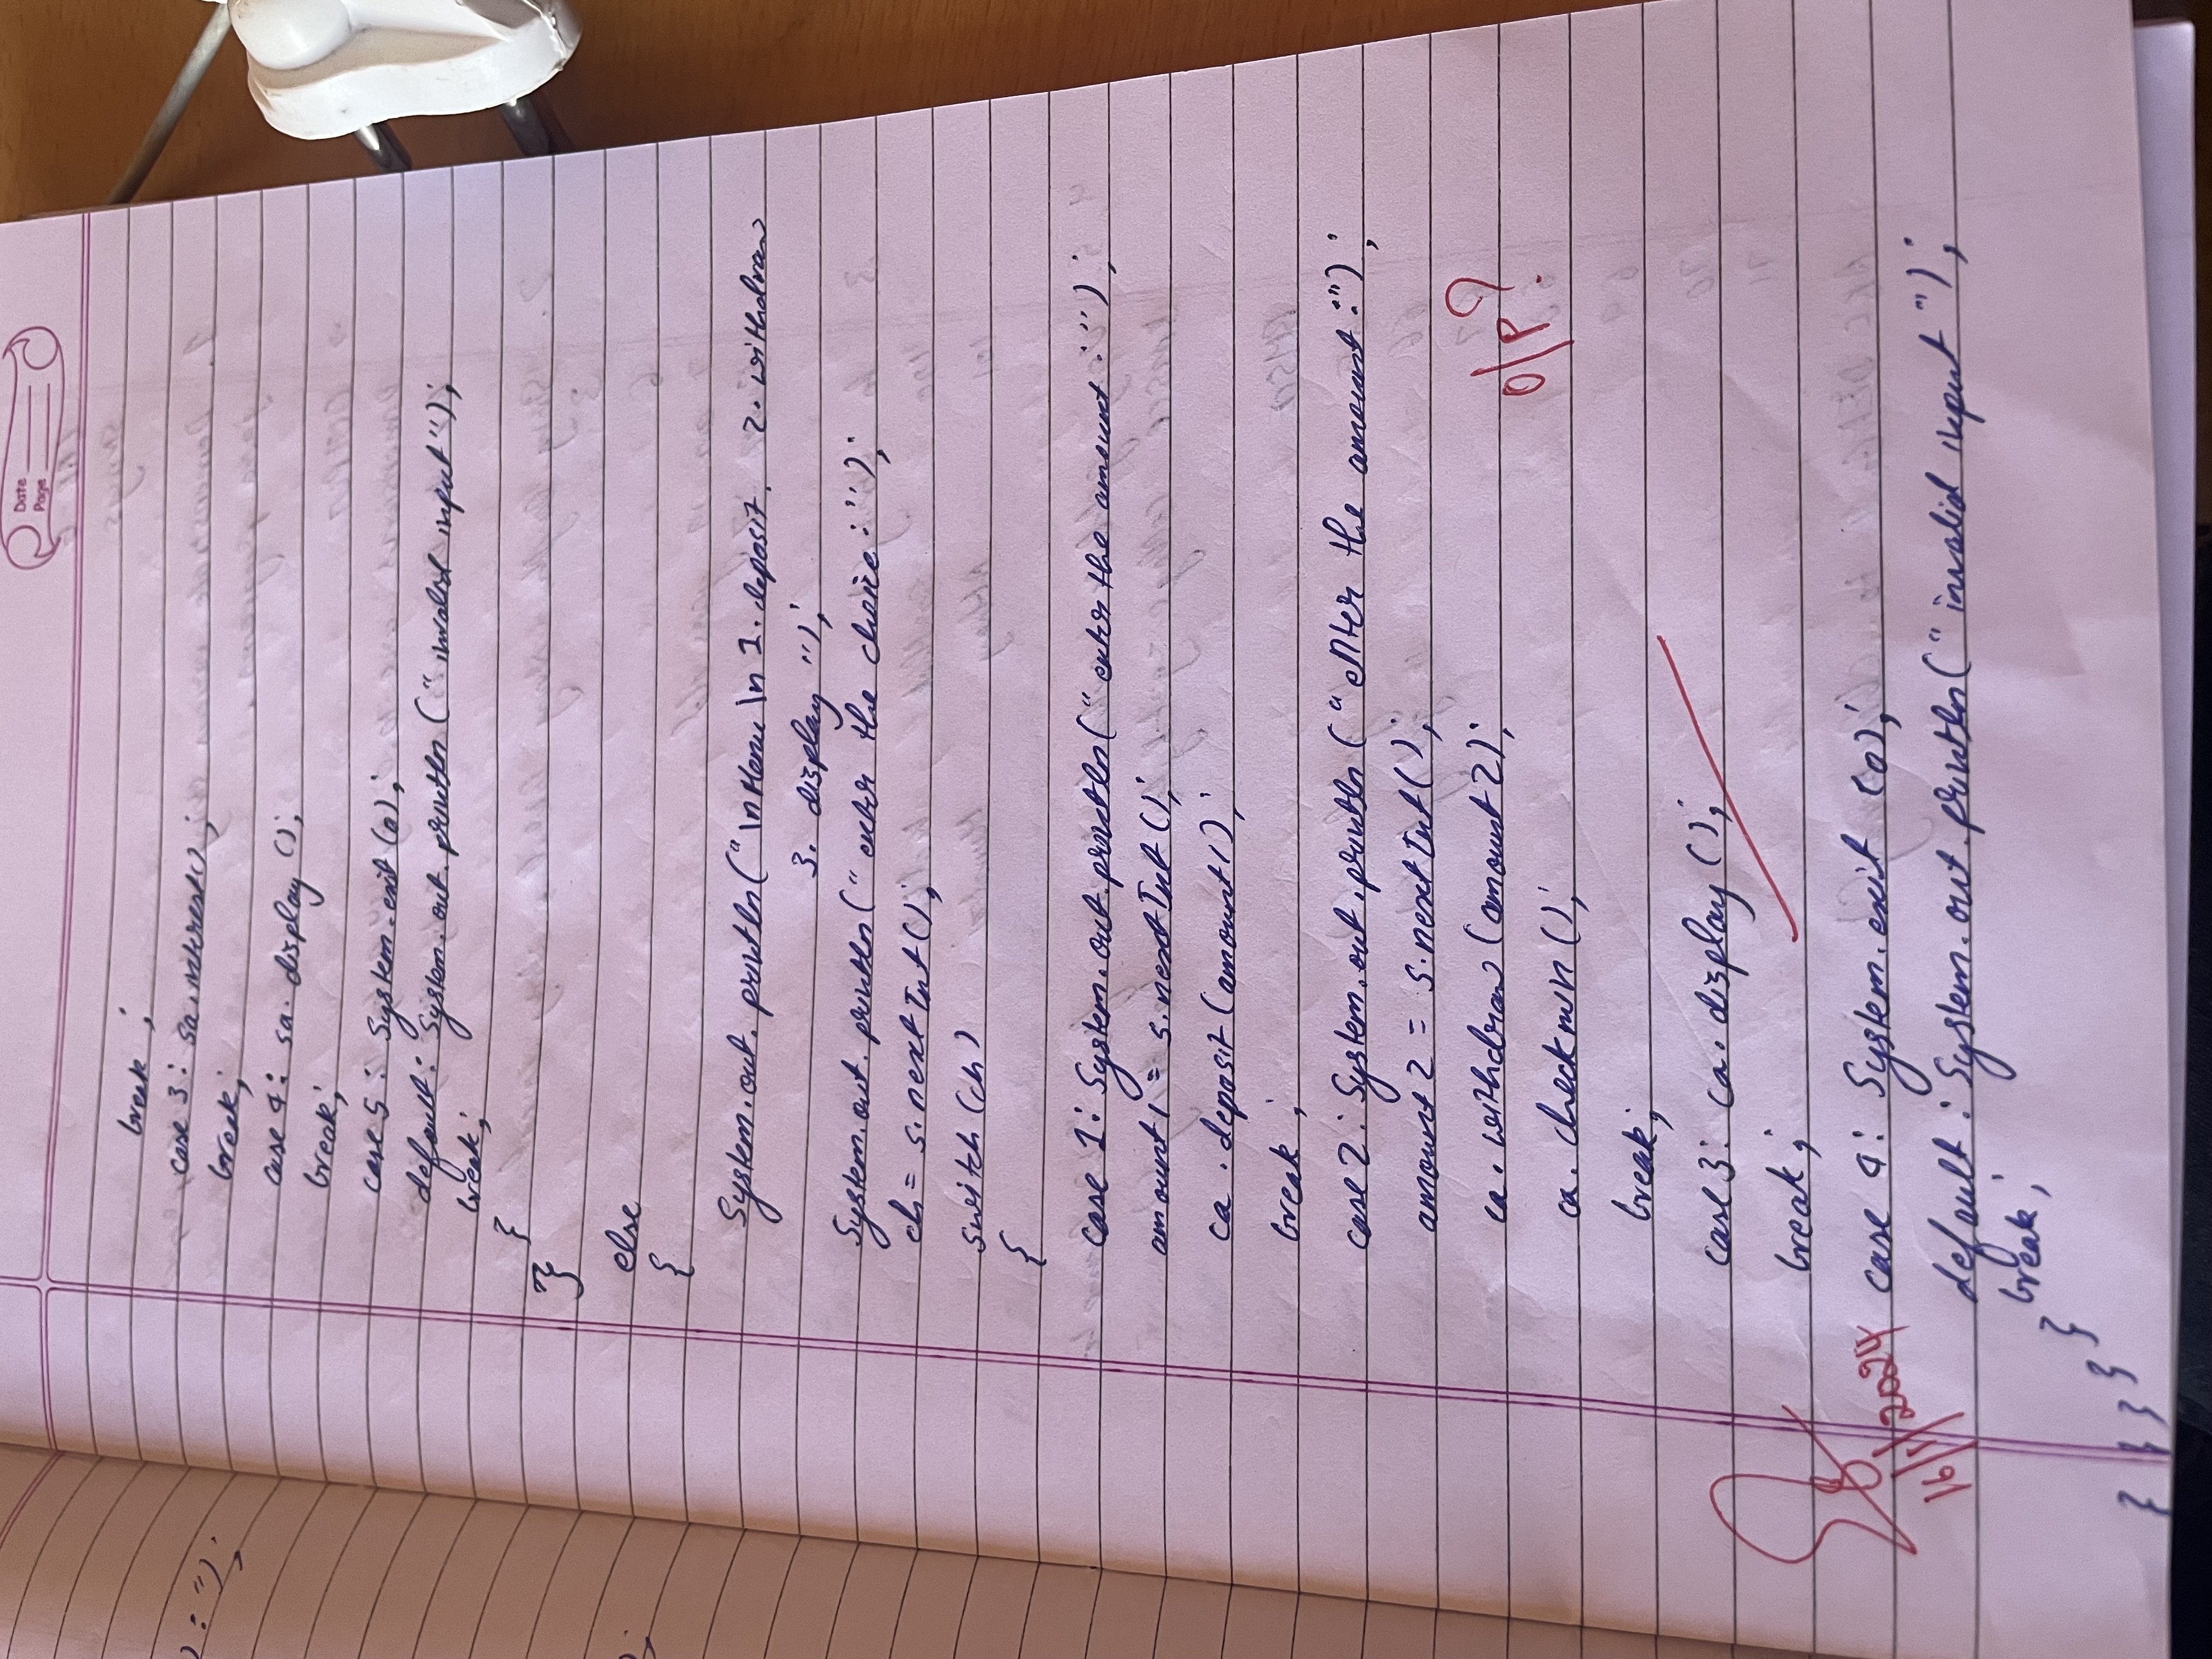 Date
Page
break ;
) : ");
case 3 : sa.interest();
break;
case 4 : sa. display ();
break;
case 5 : System.exit (0);
default : System. out. println (" invalid input");
break;
}
}
else
{
System.out. println (" \n Menu \n 1. deposit. 2. withdraw
3. display ");
System.out. println (" enter the choice : ");
ch = s. next Int ();
switch (ch)
{
case 1 : System. out. println (" enter the amount : ") ;
amount1 = s. next Int ();
ca . deposit (amount1);
break ;
case 2 : System. out. println (" enter the amount :") ;
amount 2 = s. next Int ();
ca. withdraw (amount 2);
O/P?
ca. checkmin ();
break;
case 3 : ca. display ();
break ;
case 4 : System. exit (0);
16/1/2024
default : System. out. println (" invalid input ") ;
break ;
}
}
} } }